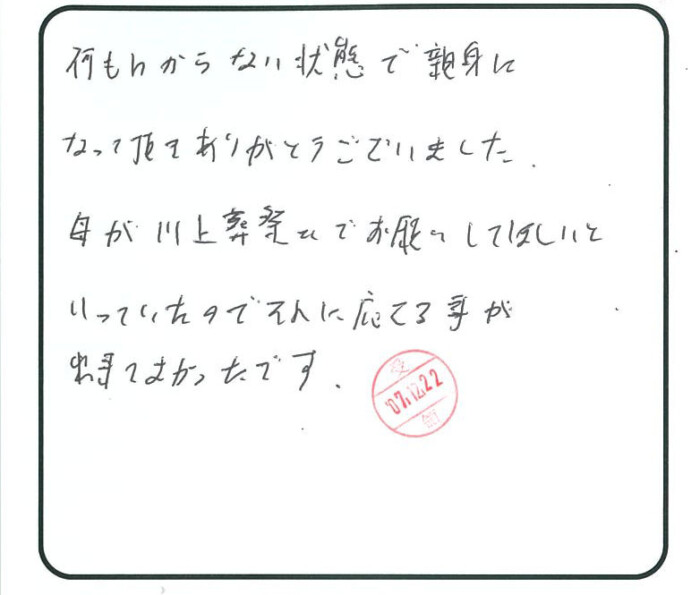 何もわからない状態で親身に
なって頂きありがとうございました.
母が川上葬祭さんでお願いしてほしいと
いっていたのでそれに応える事が
出来てよかったです.
受
'07.12.22
付